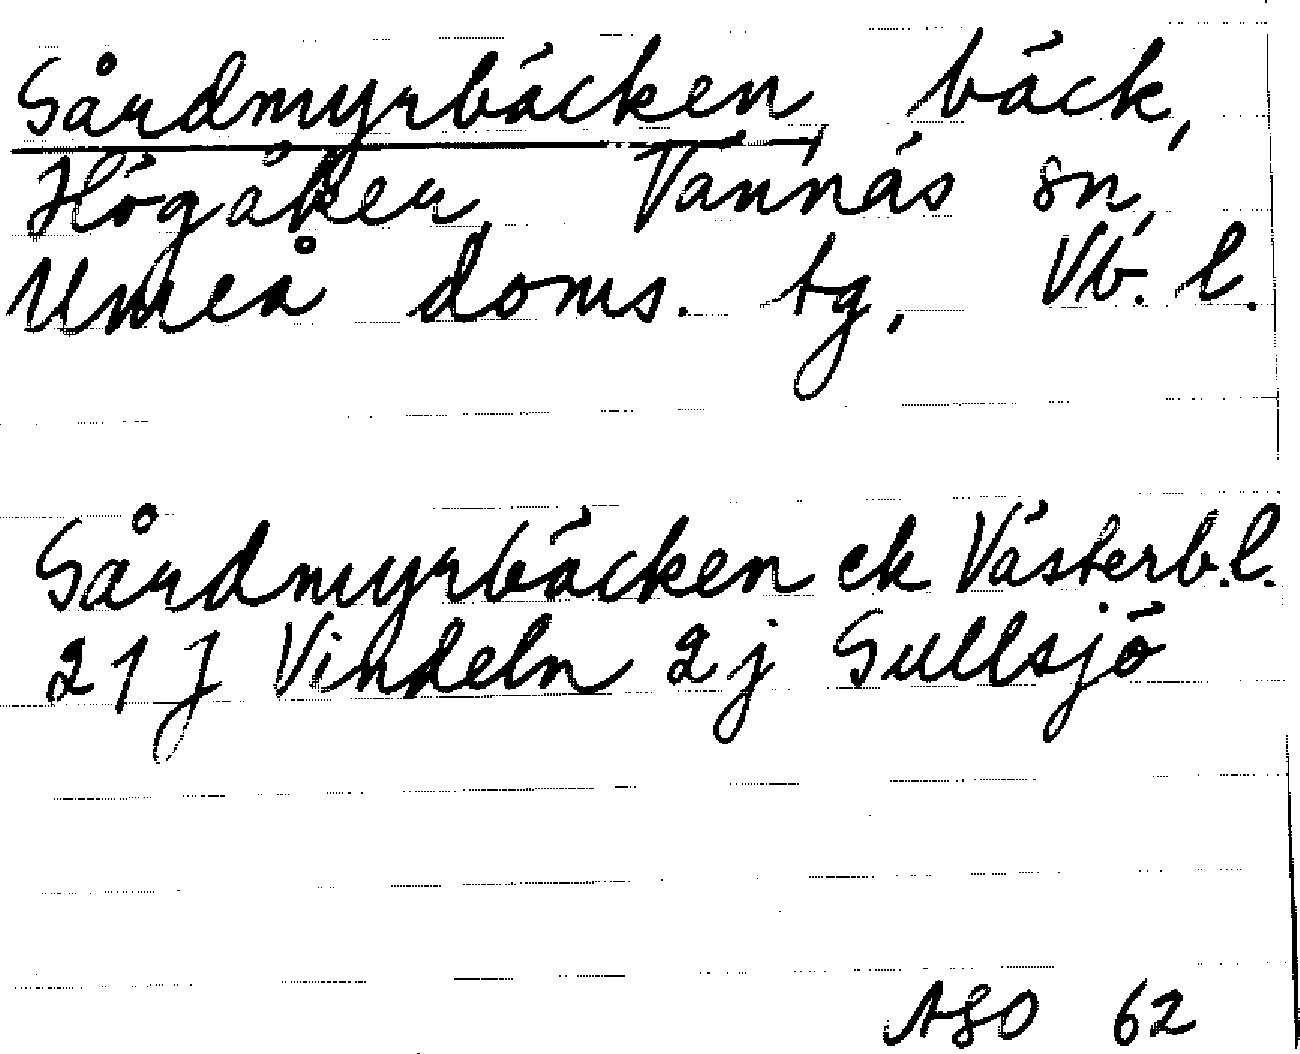 Sårdmyrbäcken, bäck,
Högåker, Vännäs sn,
Umeå doms. tg, Vb. l.
Sårdmyrbäcken ek Västerb.l.
21 J Vindeln 2 j Sullsjö
ASO 62